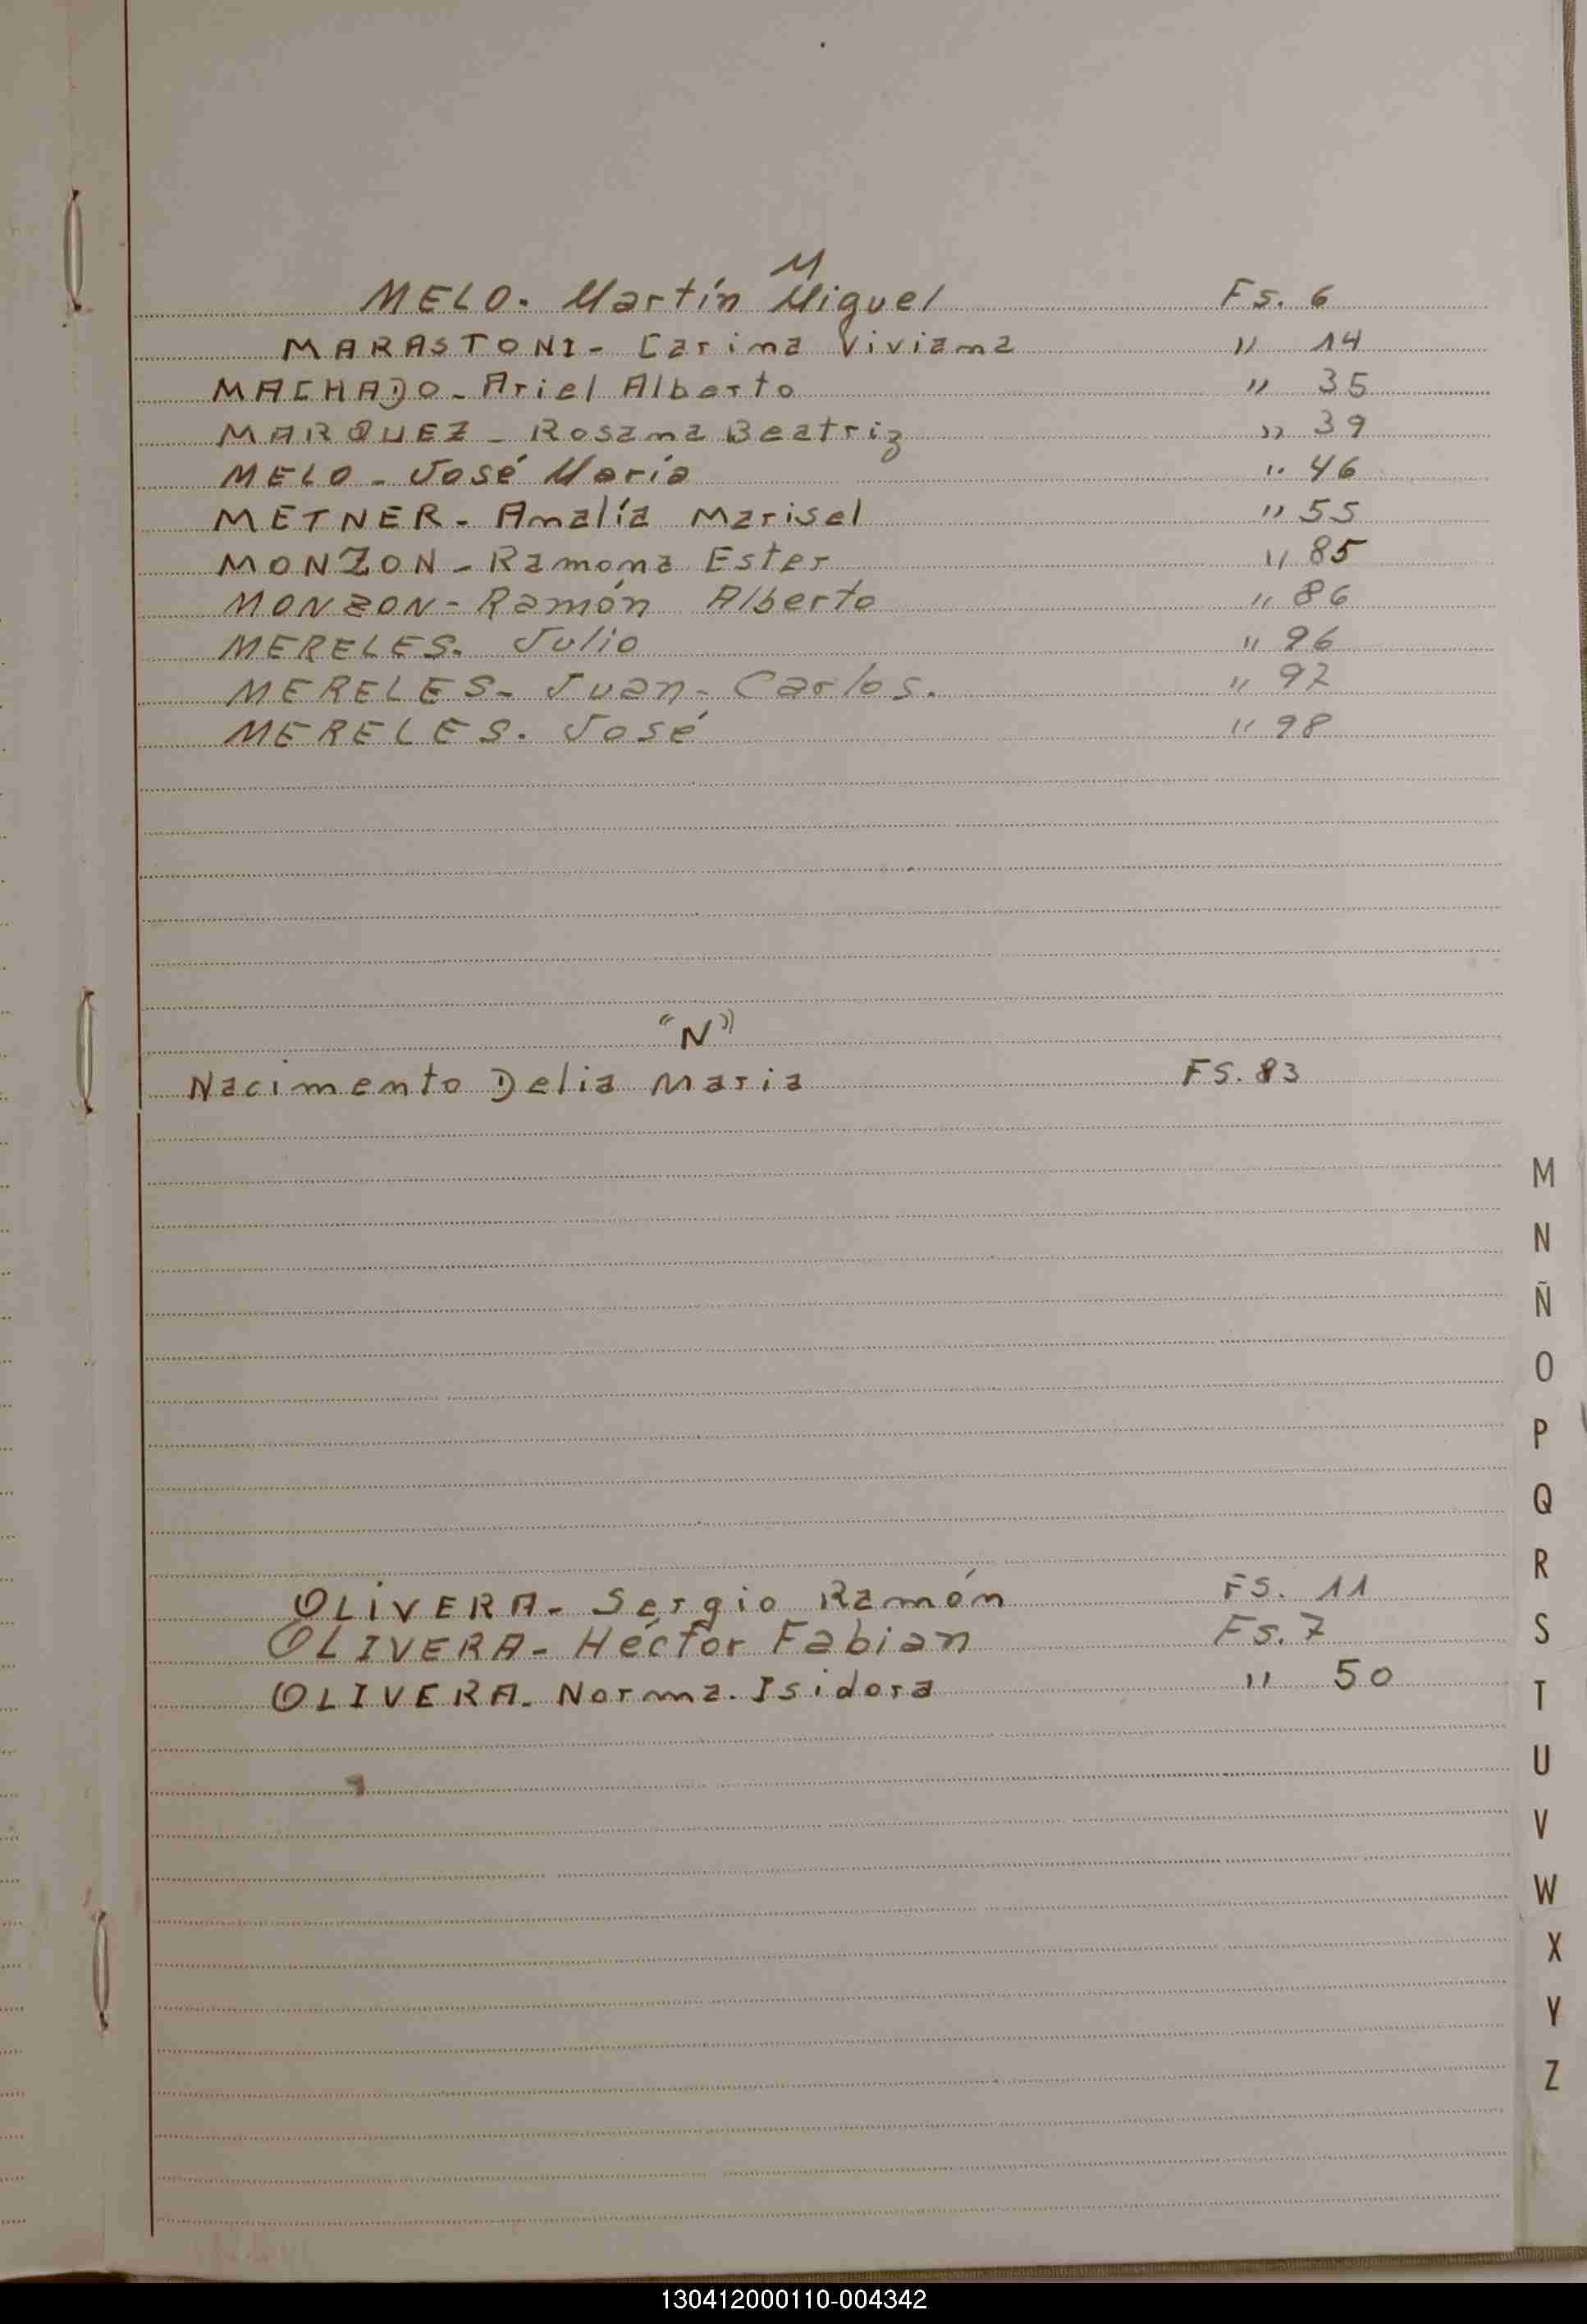 M
MELO. Martín Miguel Fs. 6
MARASTONI - Carina Viviana " 14
MACHADO - Ariel Alberto " 35
MARQUEZ - Rosana Beatriz " 39
MELO - José María " 46
METNER - Amalía Marisel " 55
MONZON - Ramona Ester " 85
MONZON - Ramón Alberto " 86
MERELES. Julio " 96
MERELES - Juan - Carlos. " 97
MERELES. José " 98
"N"
Nacimento Delia Maria FS. 83
OLIVERA - Sergio Ramón FS. 11
OLIVERA - Héctor Fabian Fs. 7
OLIVERA. Norma. Isidora " 50
M
N
Ñ
O
P
Q
R
S
T
U
V
W
X
Y
Z
130412000110-004342